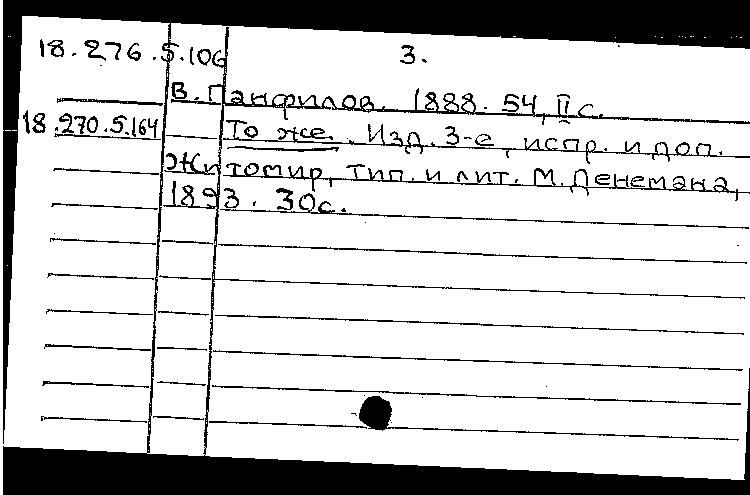 18.276.5.106 3.
В. Панфилов. 1888. 54, II с.
18.270.5.164 То же. Изд. 3-е, испр. и доп.
Житомир, тип. и лит. М. Денемана,
1893. 30с.